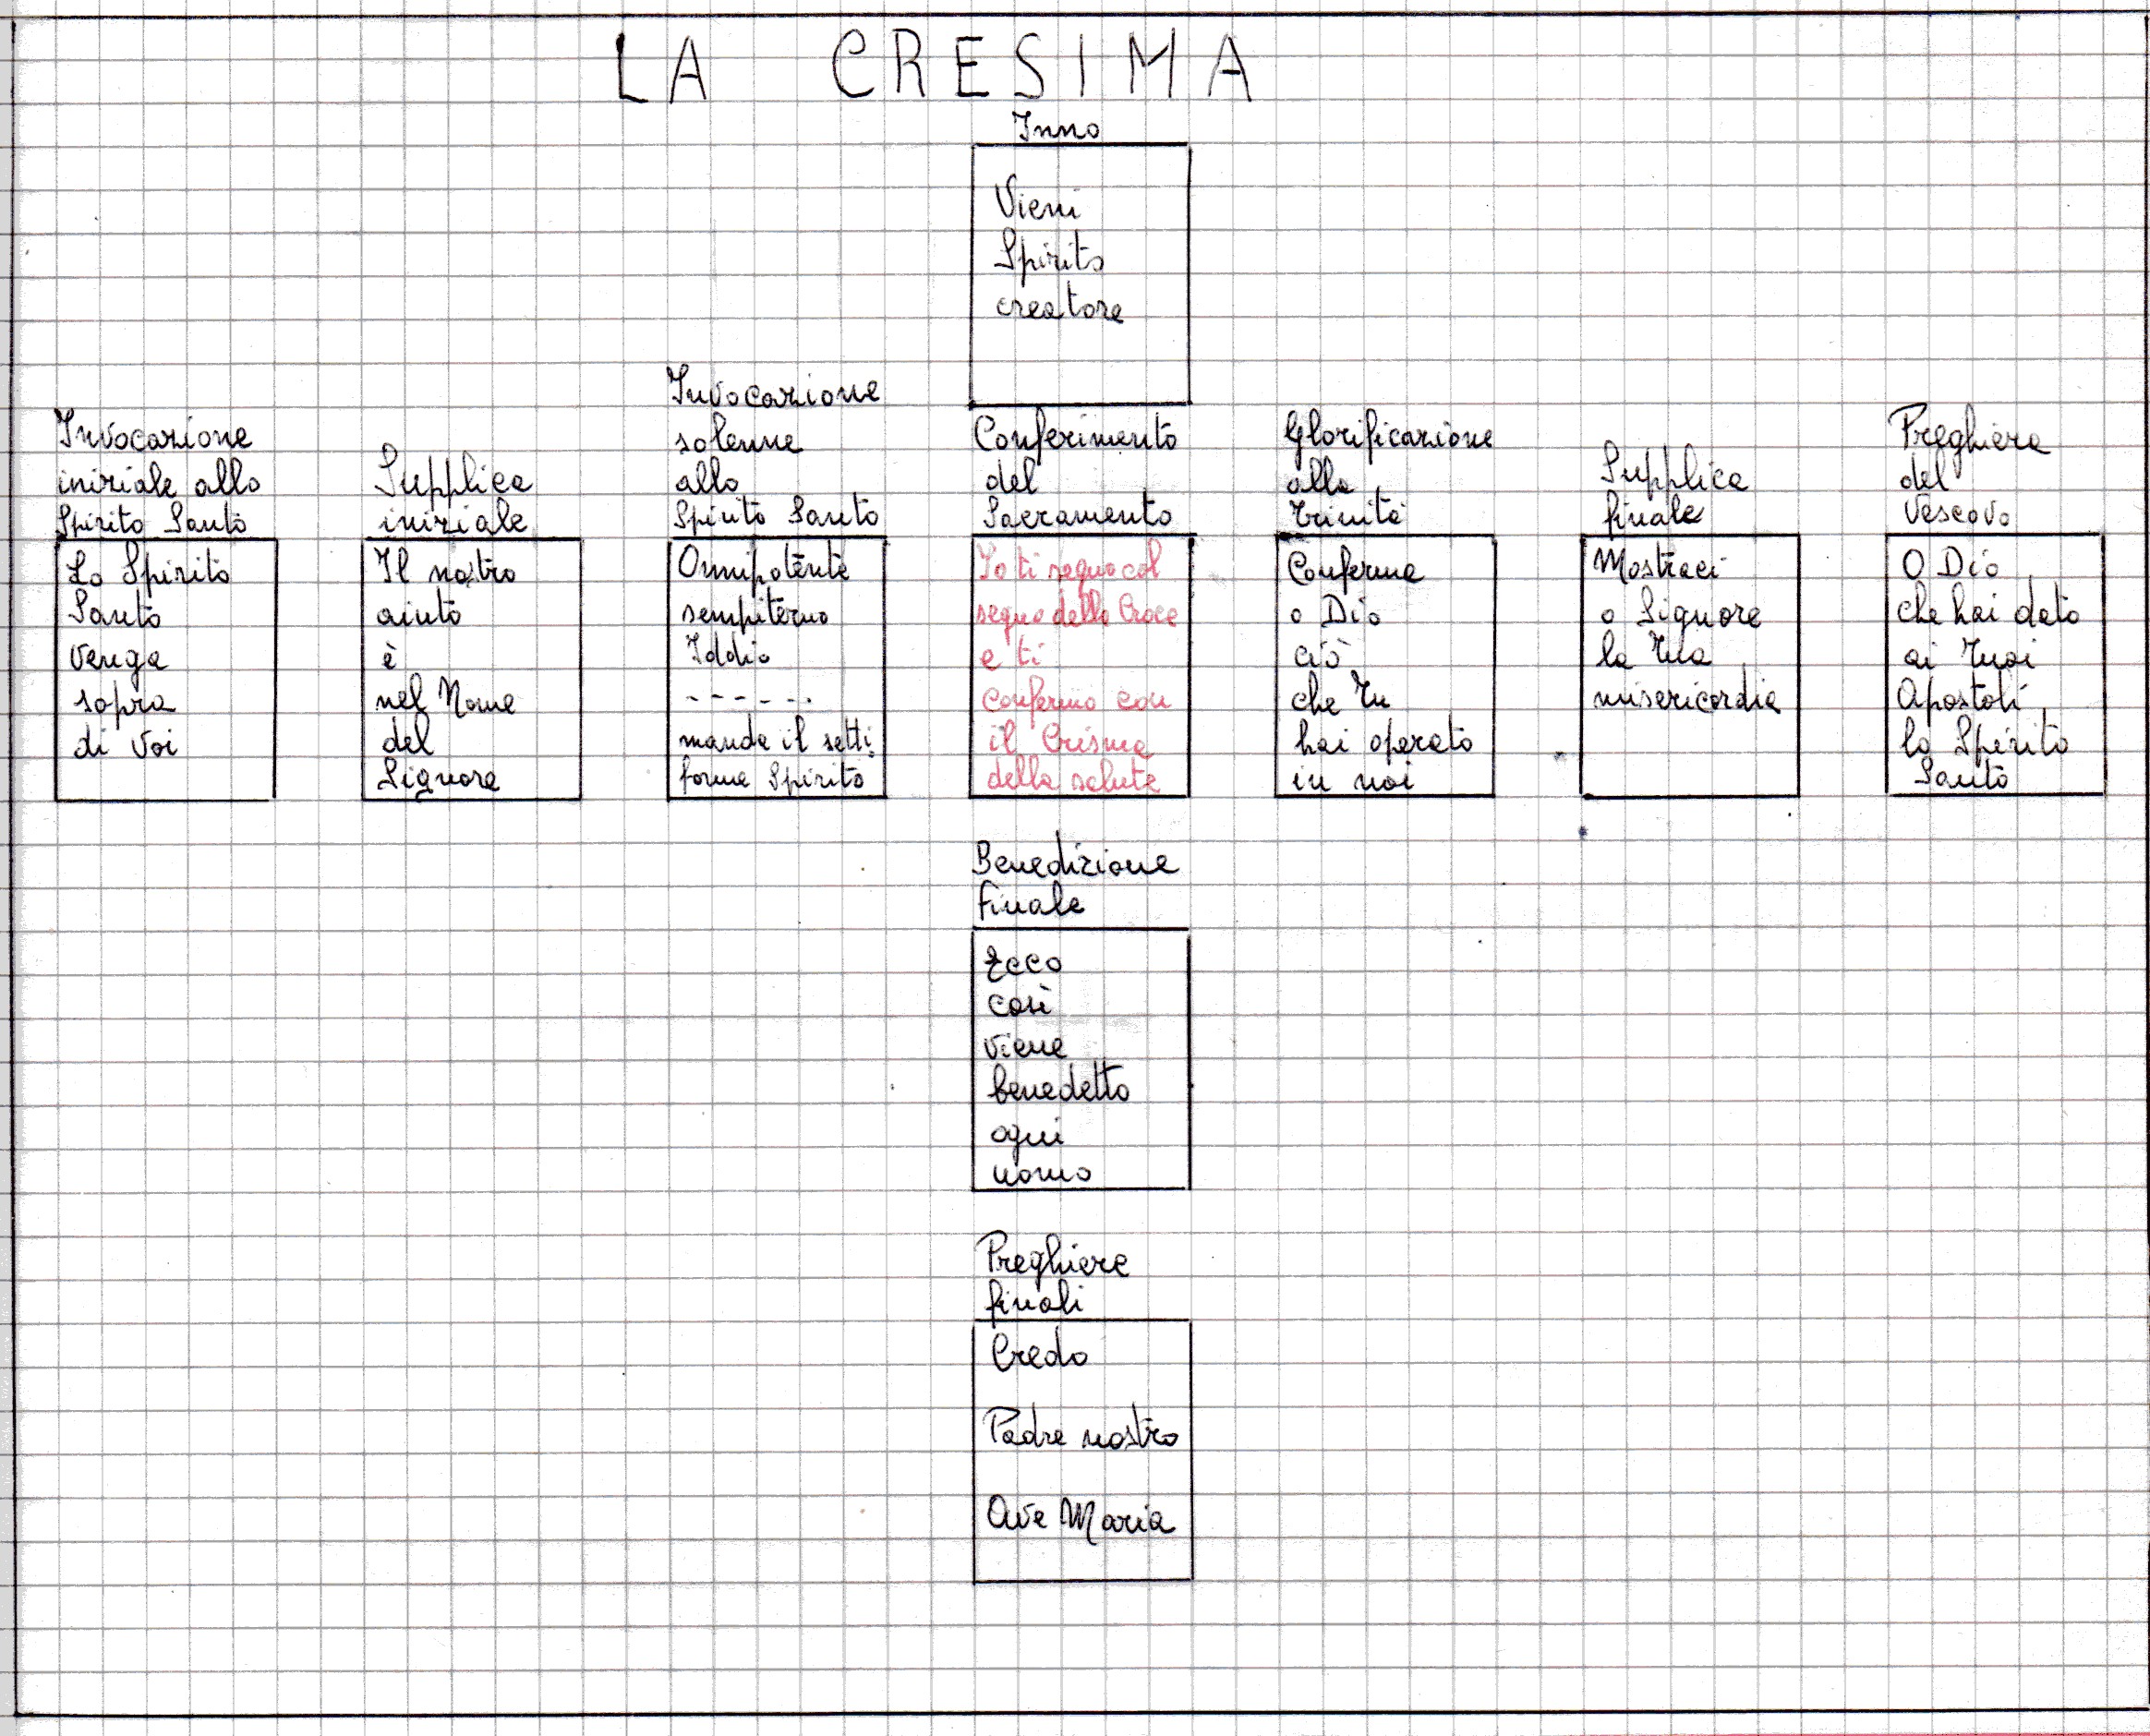 LA CRESIMA
Inno
Vieni
Spirito
creatore
Invocazione
iniziale allo
Spirito Santo
Lo Spirito
Santo
venga
sopra
di voi
Supplica
iniziale
Il nostro
aiuto
è
nel Nome
del
Signore
Invocazione
solenne
allo
Spirito Santo
Onnipotente
sempiterno
Iddio
- - - - - -
manda il setti
forme Spirito
Conferimento
del
Sacramento
Io ti segno col
segno della Croce
e ti
confermo con
il Crisma
della salute
Glorificazione
alla
Trinità
Conferma
o Dio
ciò
che Tu
hai operato
in noi
Supplica
finale
Mostraci
o Signore
la Tua
misericordia
Preghiera
del
Vescovo
O Dio
che hai dato
ai Tuoi
Apostoli
lo Spirito
Santo
Benedizione
finale
Ecco
così
viene
benedetto
ogni
uomo
Preghiere
finali
Credo
Padre nostro
Ave Maria